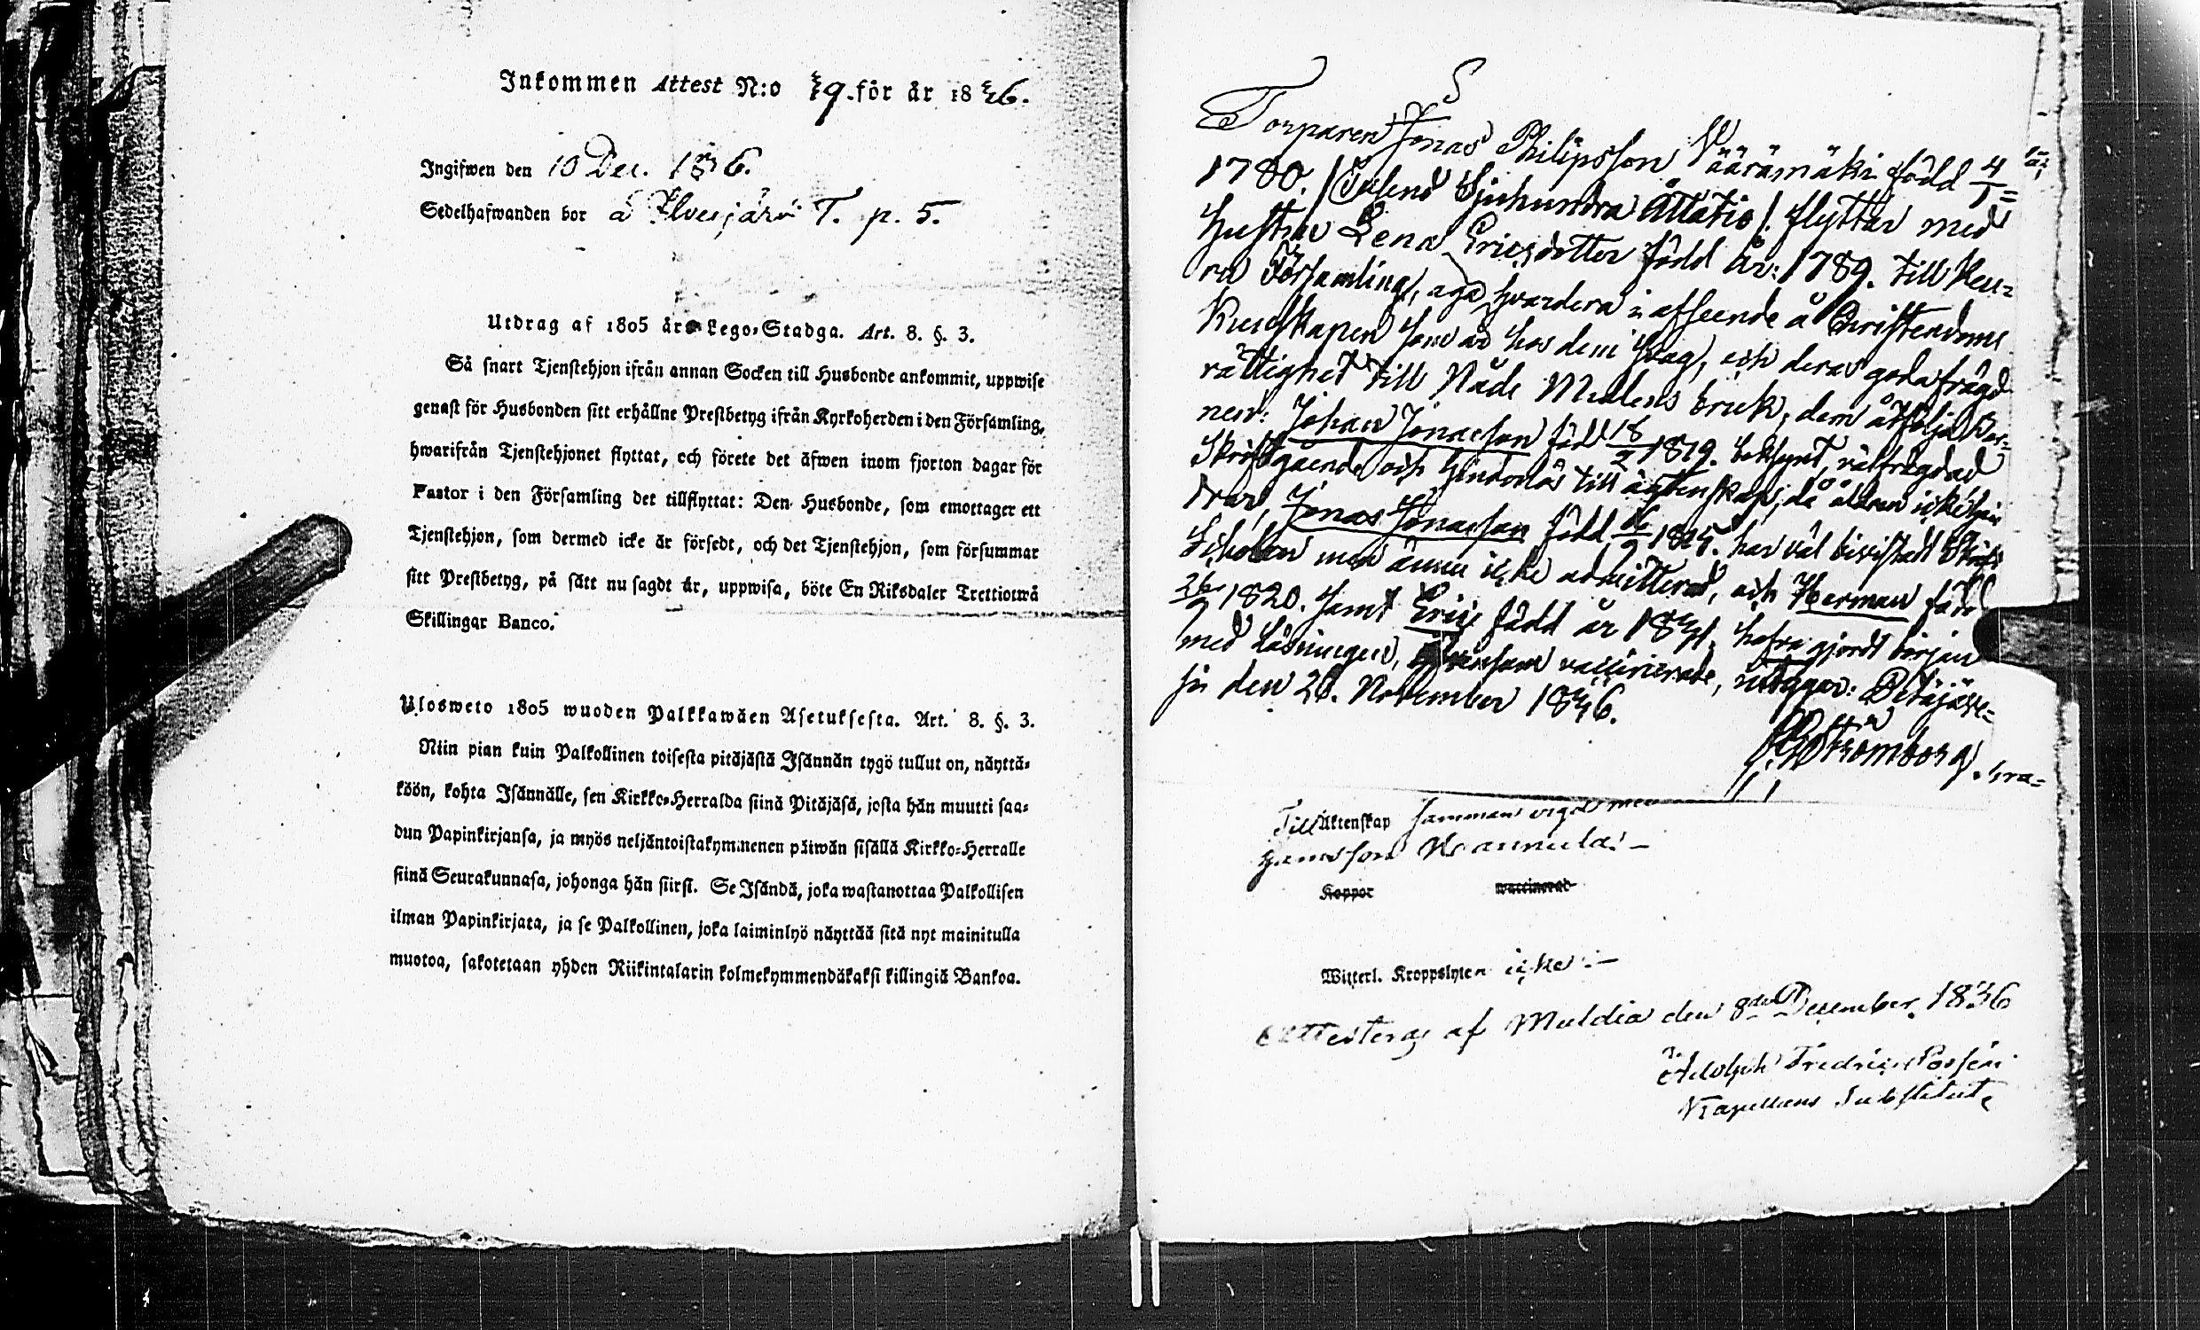 Inkommen Attest N:o 39. för år 1836.
Ingifwen den 10 Dec. 1836.
Sedelhafwanden bor å Ilvesjärvi T. p. 5.
Utdrag af 1805 års Lego-Stadga. Art. 8. §. 3.
Så snart Tjenstehjon ifrån annan Socken till Husbonde ankommit, uppwise
genast för Husbonden sitt erhållne Prestbetyg ifrån Kyrkoherden i den Församling,
hwarifrån Tjenstehjonet flyttat, och förete det äfwen inom fjorton dagar för
Pastor i den Församling det tillflyttat: Den Husbonde, som emottager ett
Tjenstehjon, som dermed icke är försedt, och det Tjenstehjon, som försummar
sitt Prestbetyg, på sätt nu sagdt är, uppwisa, böte En Riksdaler Trettiotwå
Skillingar Banco.
Ulosweto 1805 wuoden Palkkawäen Asetuksesta. Art. 8. §. 3.
Niin pian kuin Palkollinen toisesta pitäjästä Isännän tygö tullut on, näyttä-
köön, kohta Isännälle, sen Kirkko-Herralda siinä Pitäjäsä, josta hän muutti saa-
dun Papinkirjansa, ja myös neljäntoistakymmenen päiwän sisällä Kirkko-Herralle
siinä Seurakunnasa, johonga hän siirsi. Se Isändä, joka wastanottaa Palkollisen
ilman Papinkirjata, ja se Palkollinen, joka laiminlyö näyttää sitä nyt mainitulla
muotoa, sakotetaan yhden Riikintalarin kolmekymmendäkaksi killingiä Bankoa.
Torparen Jonas Philipsson Väärämäki född 4/1
1780. /:Tusend Sjuhundra Åttatio:/ flyttar med
hustrun Lena Ericsdotter född år: 1789. till Keu-
ru Församling, äga hvardera i afseende å Christendoms
Kunskapen som är hos dem svag, och deras goda frägd
rättighet till Nåde Medlens bruk; dem åtfölja Bar-
nen: Johan Jonasson född 18/2 1819. beksynt, välfrägdad
Skriftgående och hinderlös till ägtenskap, då åldren icke hin-
drar, Jonas Jonasson född 1825. har väl bivistadt Skrift
Scholan men ännu icke admitterad, och Herman född
26/7 1820. samt Eric född år 1831. hafva gjordt början
med Läsningen, vaccinerade, intygar: Petäjäve-
si den 28. November 1836.
Strömborg.
Till Äktenskap sammanvigd med
Hansson Kannula: -
Koppor vaccinerad
Witterl. Kroppslyten icke: -
Attesteras af Muldia den 8de December 1836
Adolph Fredric
Kapellans Substitut